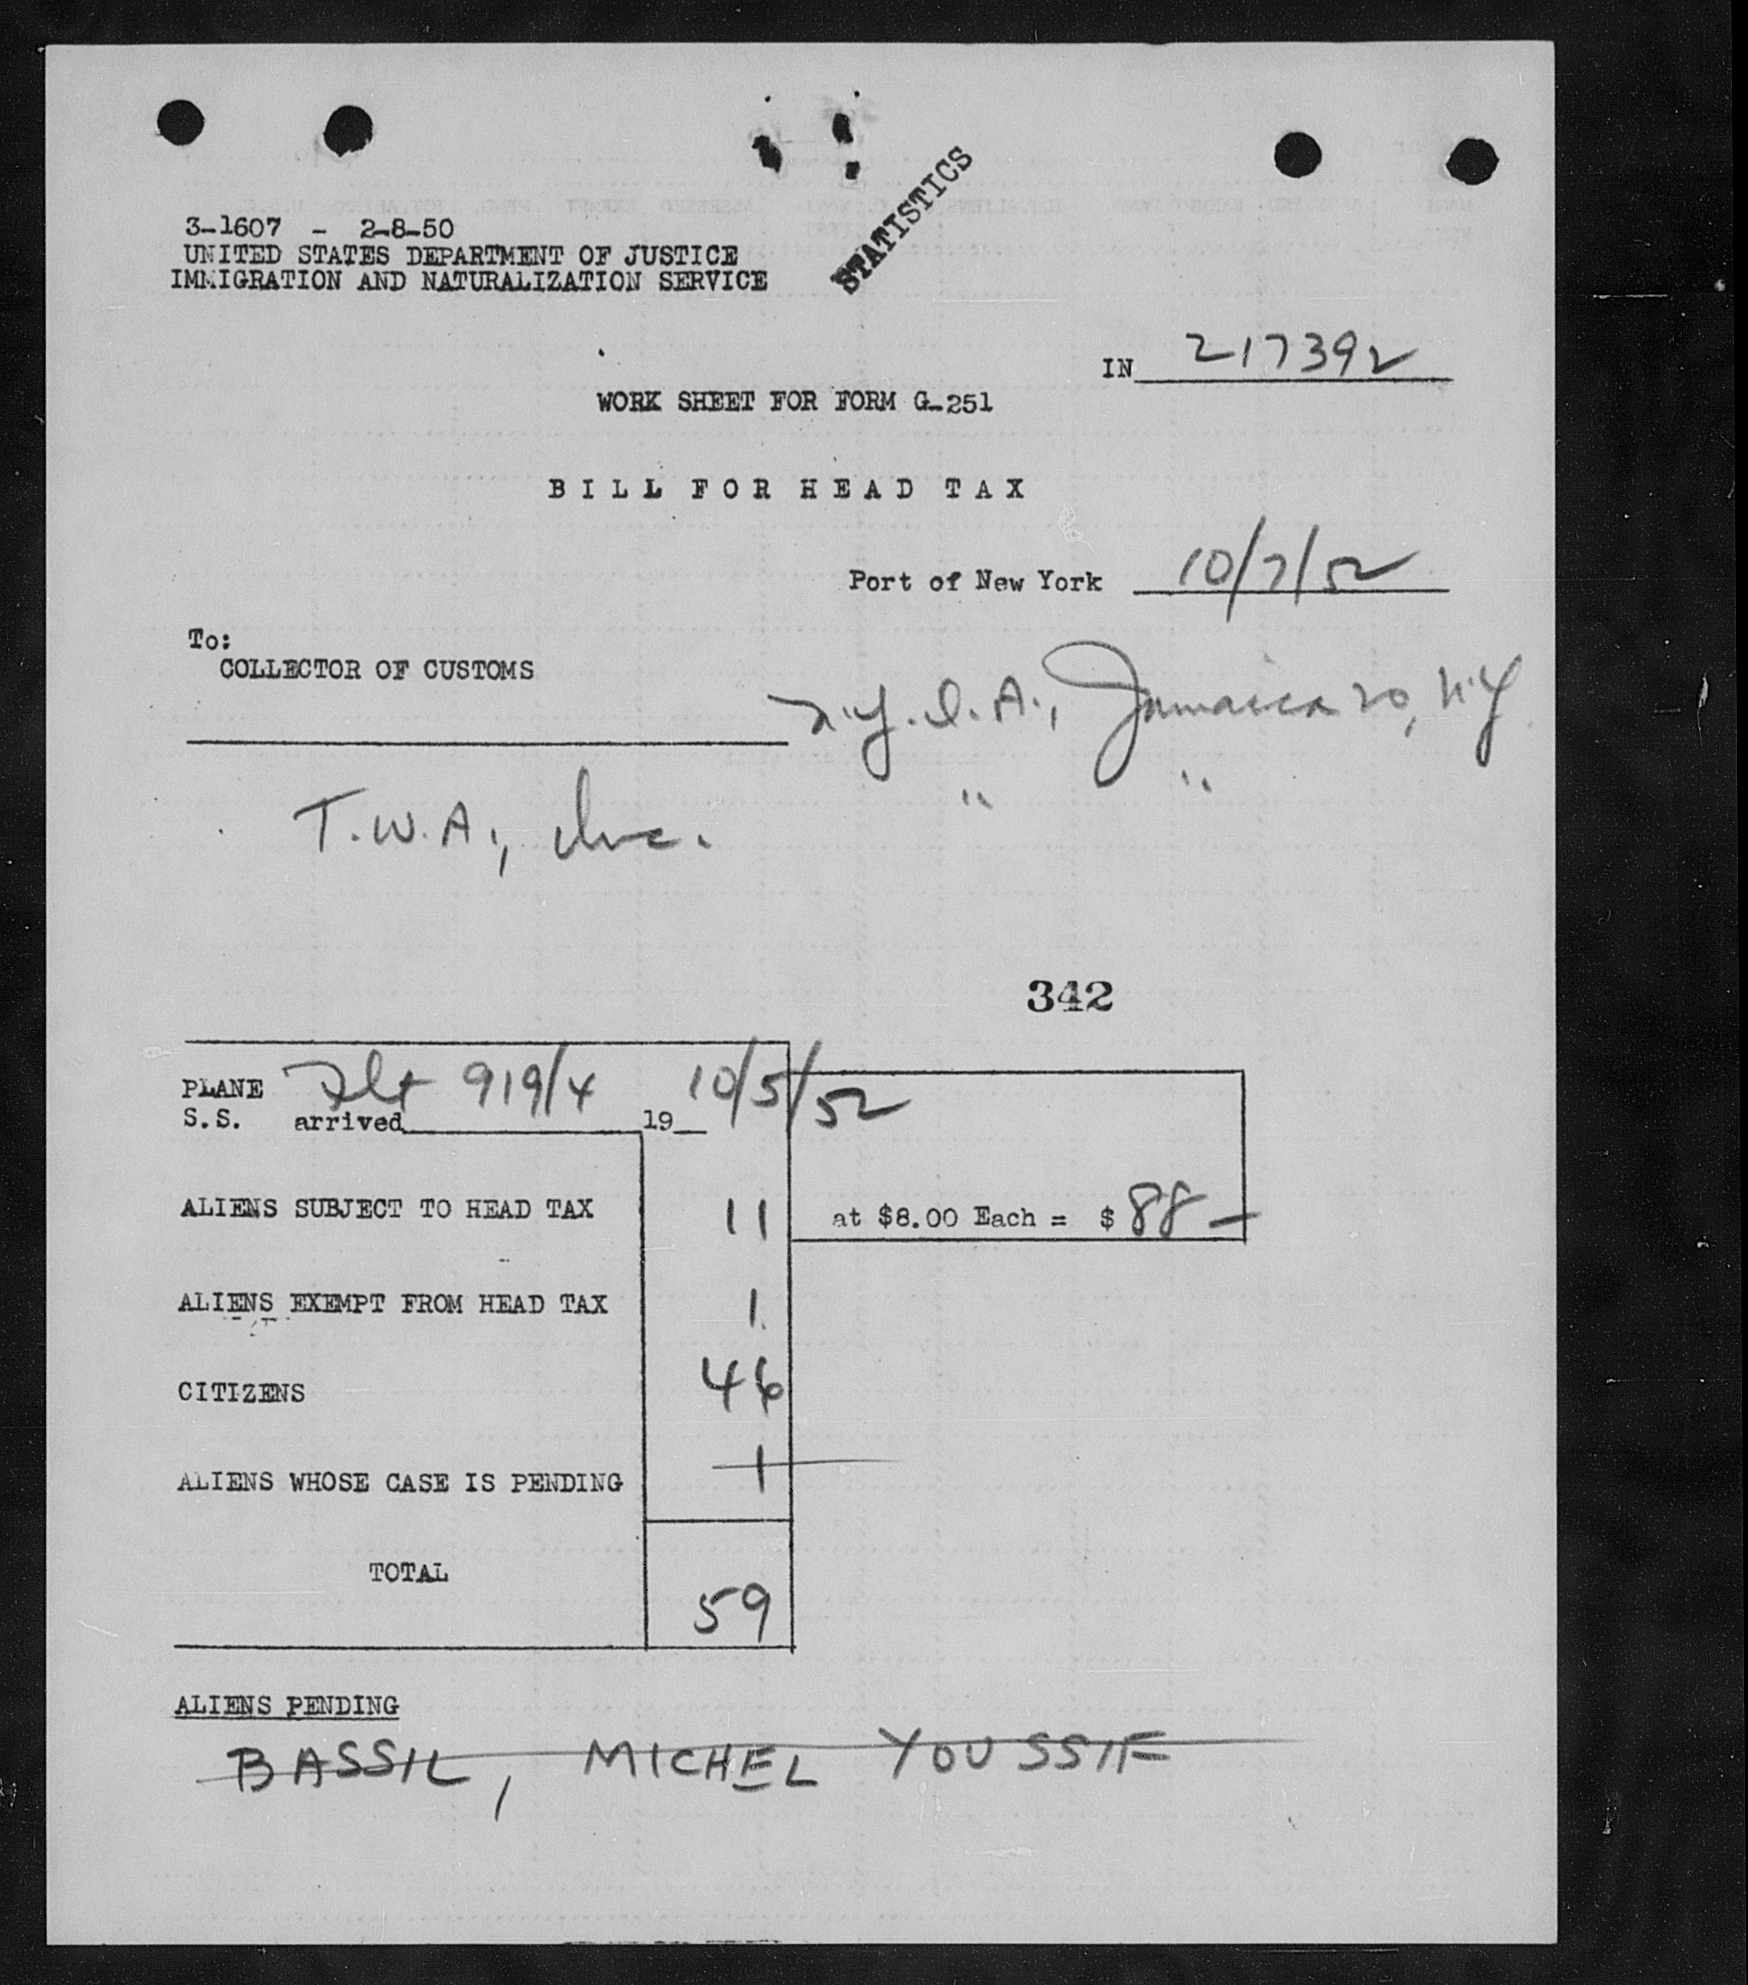 STATISTICS
3-1607 - 2-8-50
UNITED STATES DEPARTMENT OF JUSTICE
IMMIGRATION AND NATURALIZATION SERVICE
IN 217392
WORK SHEET FOR FORM G-251
BILL FOR HEAD TAX
Port of New York 10/7/52
To:
COLLECTOR OF CUSTOMS
N.Y.I.A., Jamaica 20, N.Y.
" "
T.W.A., Inc.
342
PLANE Flt 919/4 10/5/52
S.S. arrived 19
ALIENS SUBJECT TO HEAD TAX 11 at $8.00 Each = $ 88 —
ALIENS EXEMPT FROM HEAD TAX 1
CITIZENS 46
ALIENS WHOSE CASE IS PENDING 1
TOTAL 59
ALIENS PENDING
BASSIL, MICHEL YOUSSIF